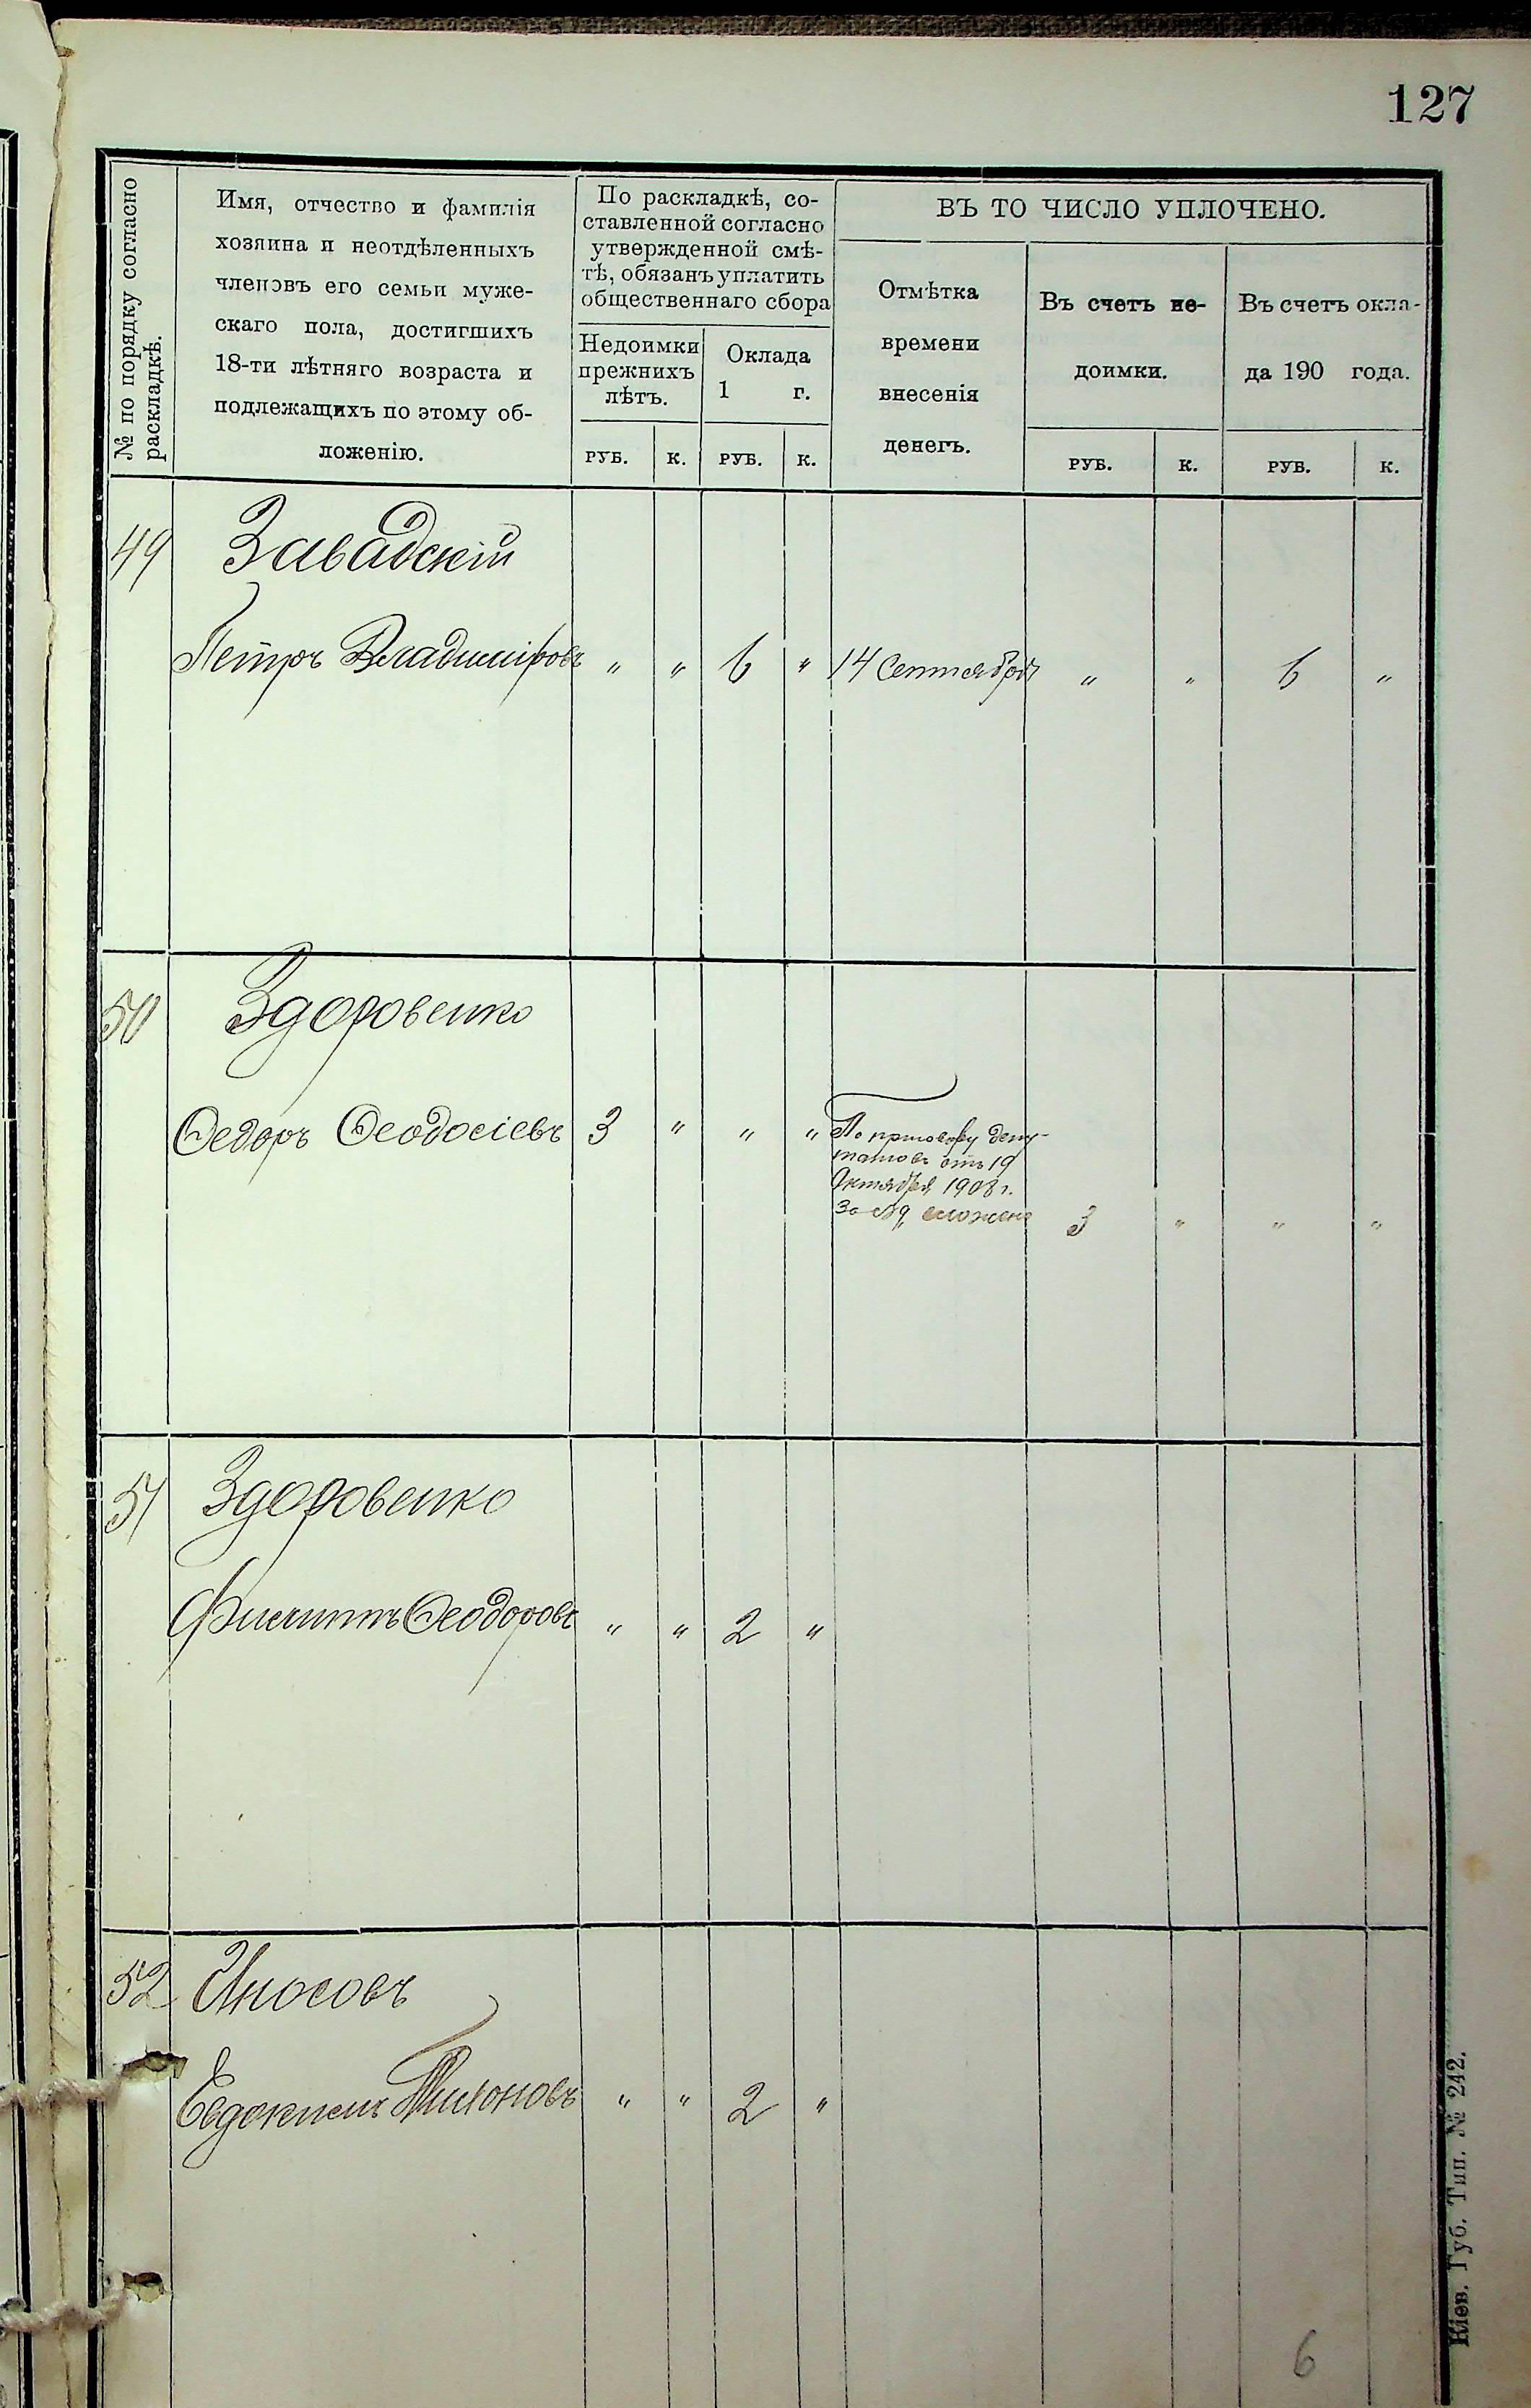 127
№ по порядку согласно
раскладкѣ.
Имя, отчество и фамилія
хозяина и неотдѣленныхъ
членовъ его семьи муже-
скаго пола, достигшихъ
18-ти лѣтняго возраста и
подлежащихъ по этому об-
ложенію.
По раскладкѣ, со-
ставленной согласно
утвержденной смѣ-
тѣ, обязанъ уплатить
общественнаго сбора
Недоимки
прежнихъ
лѣтъ.
Оклада
1 г.
РУБ. К. РУБ. К.
ВЪ ТО ЧИСЛО УПЛОЧЕНО.
Отмѣтка
времени
внесенія
денегъ.
Въ счетъ не-
доимки.
РУБ. К.
Въ счетъ окла-
да 190 года.
РУБ. К.
49 Завадскій
Петръ Владиміровъ " " 6 " 14 Сентября " " 6 "
50 Здоровенко
Ѳедоръ Ѳеодосіевъ 3 " " "
По приговору депу-
татовъ отъ 19
Октября 1908 г.
за № 9 сложено 3 " " "
51 Здоровенко
Филиппъ Ѳеодоровъ " " 2 "
52 Иносовъ
Евдокимъ Тихоновъ " " 2 "
6
Кіев. Губ. Тип. № 242.